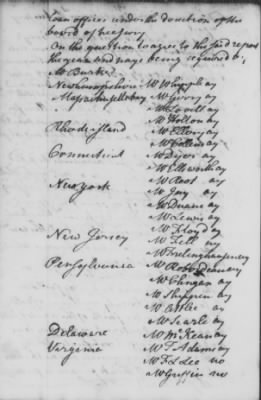 loan offices under the direction of the
board of treasury
On the question to agree to the said report
the yeas and nays being required by
Mr Burke
Newhampshire Mr Whipple ay
Massachusettsbay Mr Gerry ay
Mr Lovell ay
Mr Holton ay
Rhodeisland Mr Ellery ay
Mr Collins ay
Connecticut Mr Dyer ay
Mr Ellsworth ay
Mr Root ay
New York Mr Jay ay
Mr Duane ay
Mr Lewis ay
Mr Floyd ay
New Jersey Mr Fell no
Mr Frelinghuysen ay
Pensylvania Mr ay
Mr Clingan ay
Mr Shippen ay
Mr Atlee ay
Mr Searle ay
Delaware Mr McKean ay
Virginia Mr T Adams ay
Mr F L Lee no
Mr Griffin no